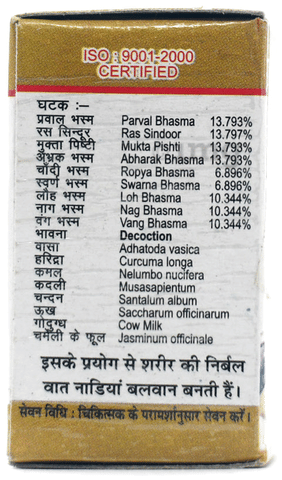 ISO : 9001-2000
CERTIFIED
घटक :–
प्रवाल भस्म Parval Bhasma 13.793%
रस सिन्दूर Ras Sindoor 13.797%
मुक्ता पिष्टी Mukta Pishti 13.793%
अभ्रक भस्म Abharak Bhasma 13.793%
चाँदी भस्म Ropya Bhasma 6.896%
स्वर्ण भस्म Swarna Bhasma 6.896%
लौह भस्म Loh Bhasma 10.344%
नाग भस्म Nag Bhasma 10.344%
वंग भस्म Vang Bhasma 10.344%
भावना Decoction
वासा Adhatoda vasica
हरिद्रा Curcuma longa
कमल Nelumbo nucifera
कदली Musasapientum
चन्दन Santalum album
ऊख Saccharum officinarum
गोदुग्ध Cow Milk
चमेली के फूल Jasminum officinale
इसके प्रयोग से शरीर की निर्बल
वात नाडियां बलवान बनती हैं।
सेवन विधि : चिकित्सक के परामर्शानुसार सेवन करें।